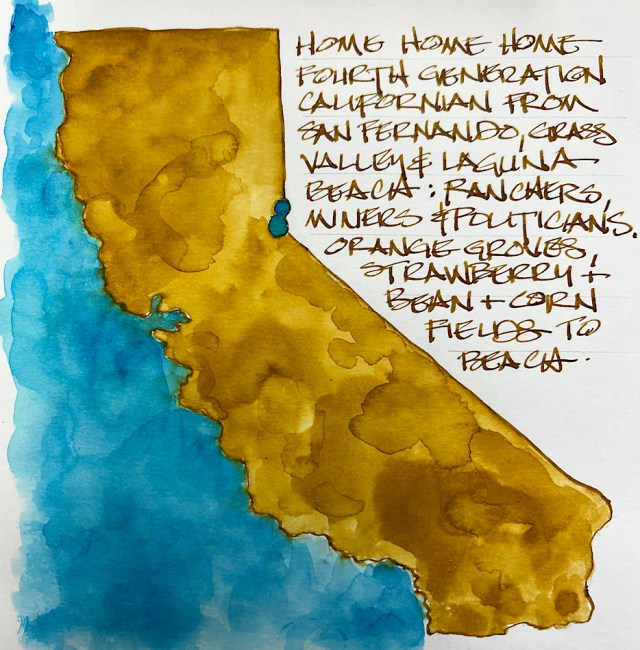 HOME HOME HOME
FOURTH GENERATION
CALIFORNIAN FROM
SAN FERNANDO, GRASS
VALLEY & LAGUNA
BEACH: RANCHERS,
MINERS & POLITICIANS.
ORANGE GROVES,
STRAWBERRY +
BEAN + CORN
FIELDS TO
BEACH.